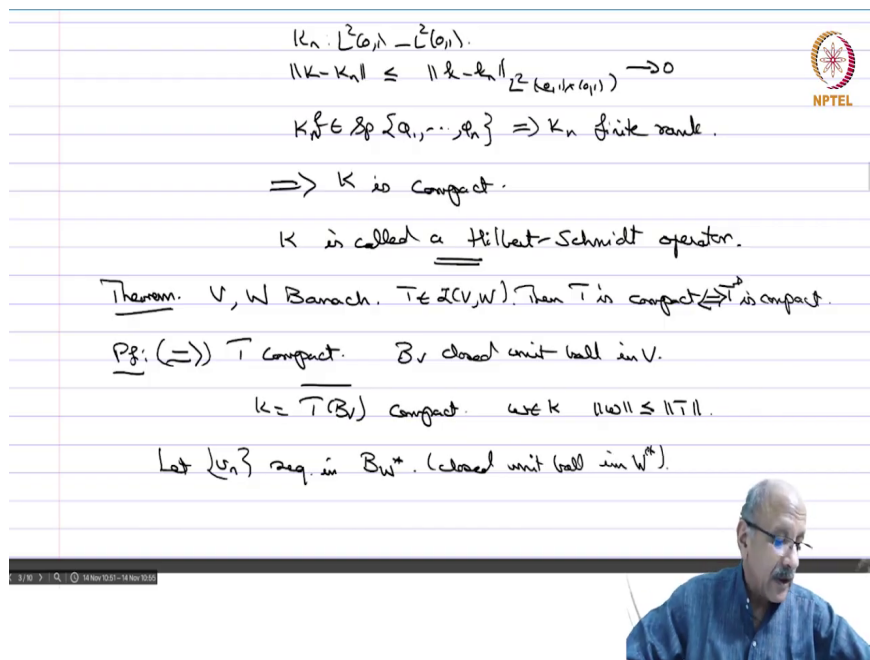 Kn : L²(0,1) → L²(0,1).
‖K-Kn‖ ≤ ‖k-kn‖ L²((0,1)×(0,1)) → 0
NPTEL
Knf ∈ Sp {φ1, ⋯, φn} ⇒ Kn finite rank.
⇒ K is compact.
K is called a Hilbert-Schmidt operator.
Theorem. V, W Banach. T ∈ L(V,W). Then T is compact ⇔ T* is compact.
Pf: (⇒) T compact. Bv closed unit ball in V.
K = T(Bv) compact. w ∈ K ‖w‖ ≤ ‖T‖.
Let {vn} seq. in Bw*. (closed unit ball in W*).
3/10 14 Nov 10:51 - 14 Nov 10:55